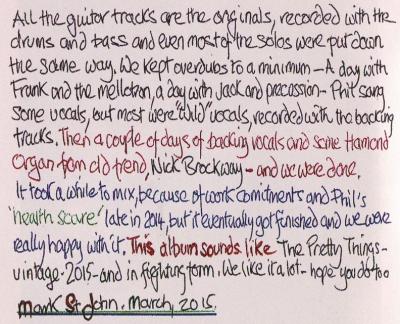 All the guitar tracks are the originals, recorded with the
drums and bass and even most of the solos were put down
the same way. We kept overdubs to a minimum - A day with
Frank and the mellotron, a day with Jack and precussion - Phil sang
some vocals, but most were "wild" vocals, recorded with the backing
tracks. Then a couple of days of backing vocals and some Hamond
Organ from old freind, Nick Brockway - and we were done.
It took a while to mix, because of work comitments and Phil's
'health scare' late in 2014, but it eventually got finished and we were
really happy with it. This album sounds like The Pretty Things -
vintage - 2015 - and in fighting form. We like it a lot - hope you do too
Mark St John. March, 2015.